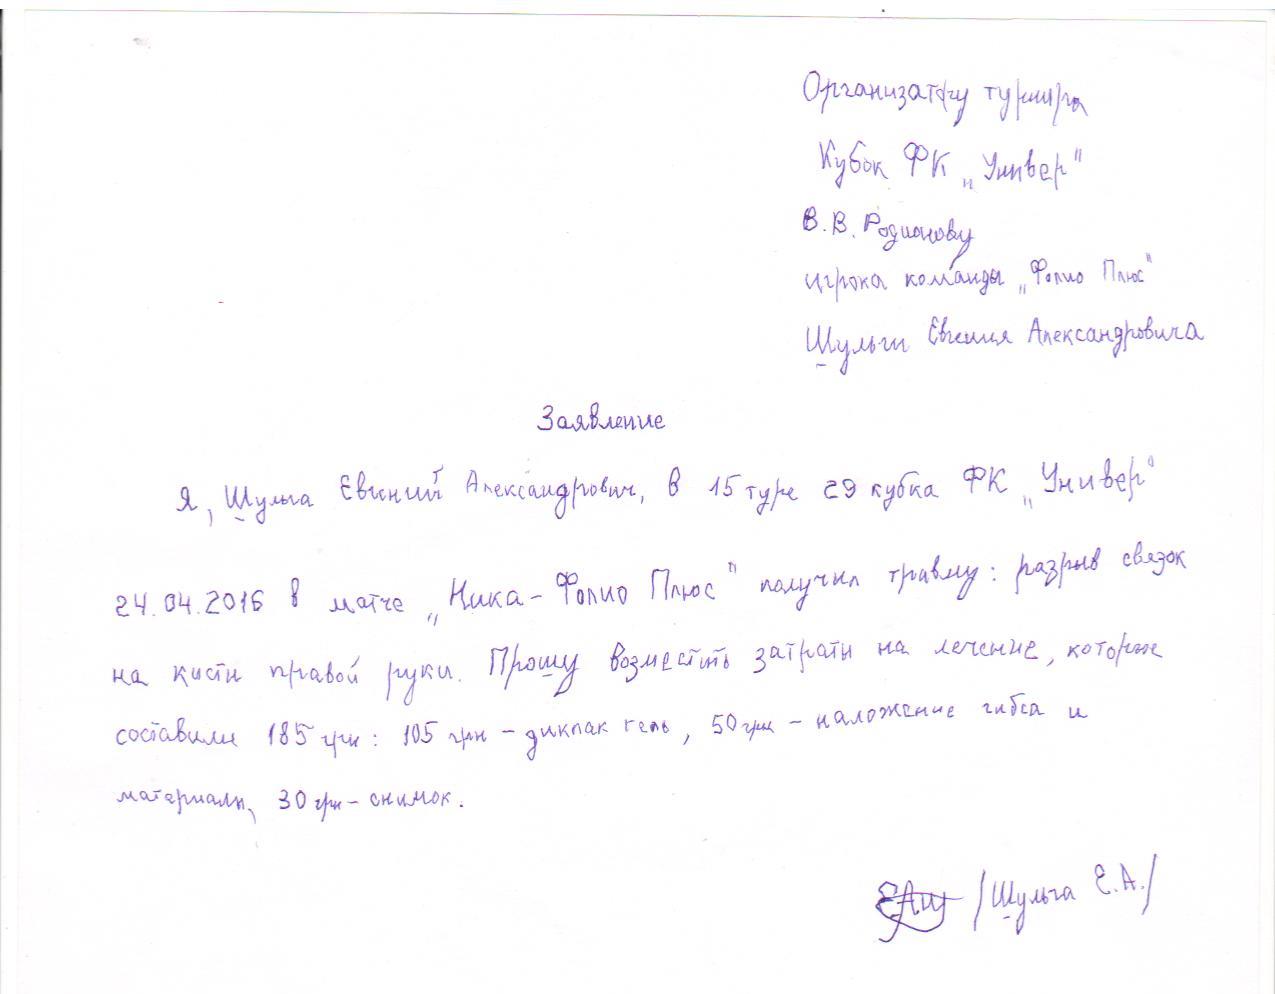 Организатору турнира
Кубок ФК „Универ"
В.В. Родионову
игрока команды „Фолио Плюс"
Шульги Евгения Александровича
Заявление
Я, Шульга Евгений Александрович, в 15 туре 29 кубка ФК „Универ"
24.04.2016 в матче „Ника-Фолио Плюс" получил травму: разрыв связок
на кисти правой руки. Прошу возместить затраты на лечение, которые
составили 185 грн: 105 грн - диклак гель, 50 грн - наложение гибса и
материалы, 30 грн - снимок.
/Шульга Е.А./